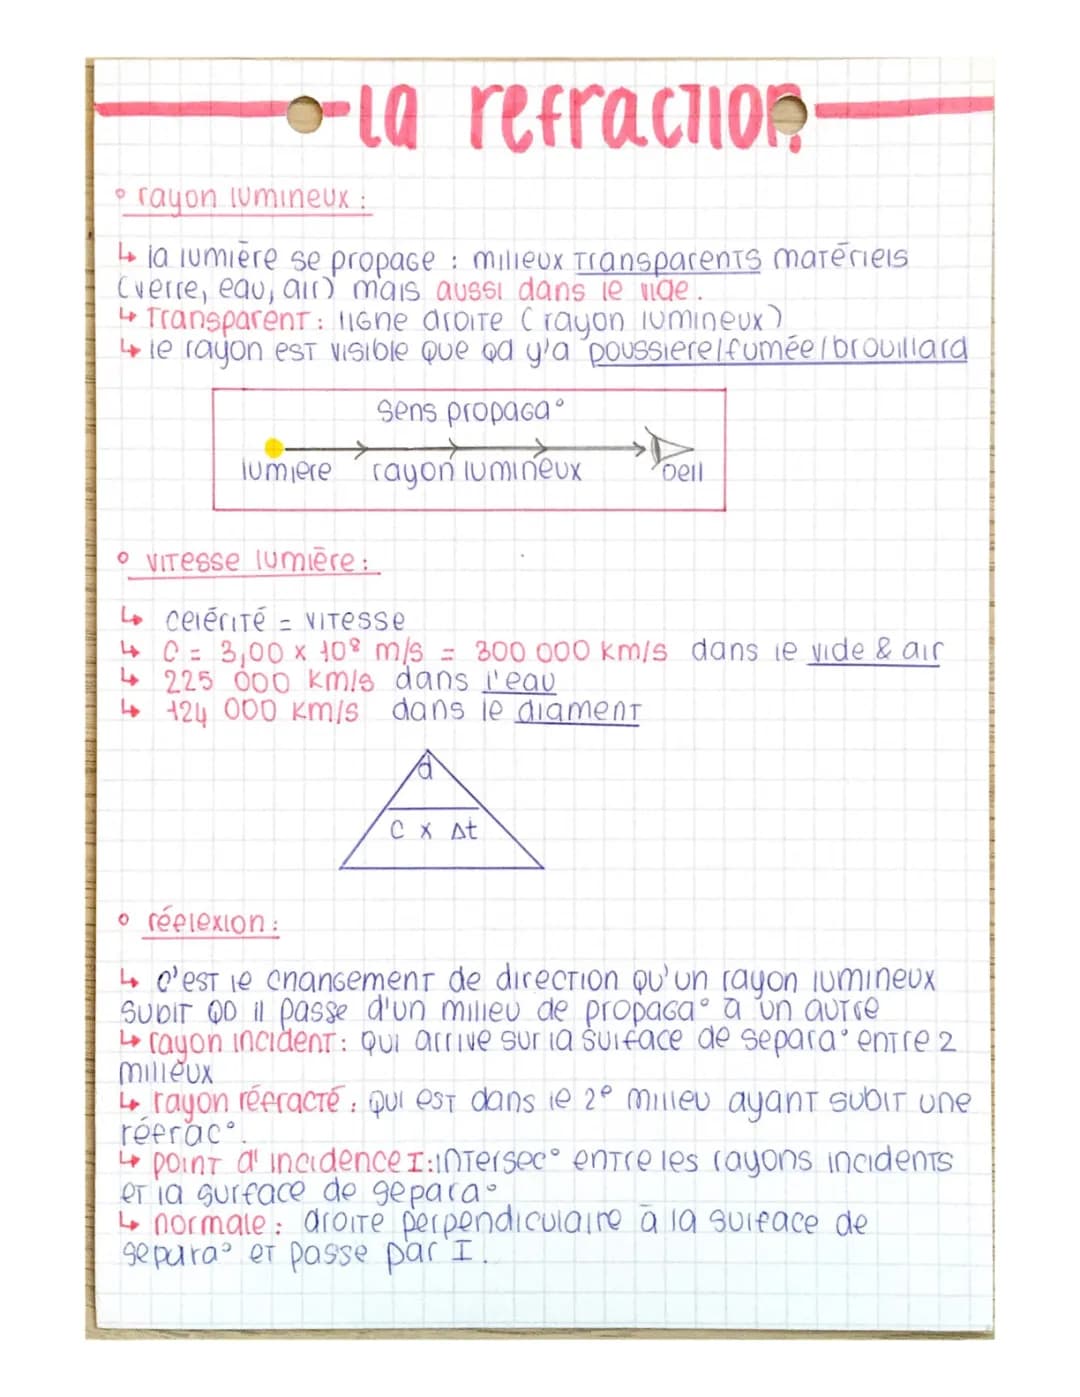 la refraction
° rayon lumineux :
↳ la lumière se propage : milieux transparents matériels
(verre, eau, air) mais aussi dans le vide.
↳ Transparent : ligne droite (rayon lumineux)
↳ le rayon est visible que qd y'a poussiere/fumée/brouillard
sens propaga°
lumiere rayon lumineux oeil
° vitesse lumière :
↳ celérité = vitesse
↳ C = 3,00 x 10⁸ m/s = 300 000 km/s dans le vide & air
↳ 225 000 km/s dans l'eau
↳ 124 000 km/s dans le diament
d
C x Δt
° réflexion :
↳ c'est le changement de direction qu'un rayon lumineux
subit qd il passe d'un milieu de propaga° à un autre
↳ rayon incident : qui arrive sur la surface de separa° entre 2
milieux
↳ rayon réfracté : qui est dans le 2ᵉ milieu ayant subit une
réfrac°.
↳ point d'incidence I : intersec° entre les rayons incidents
et la surface de separa°
↳ normale : droite perpendiculaire à la surface de
separa° et passe par I.